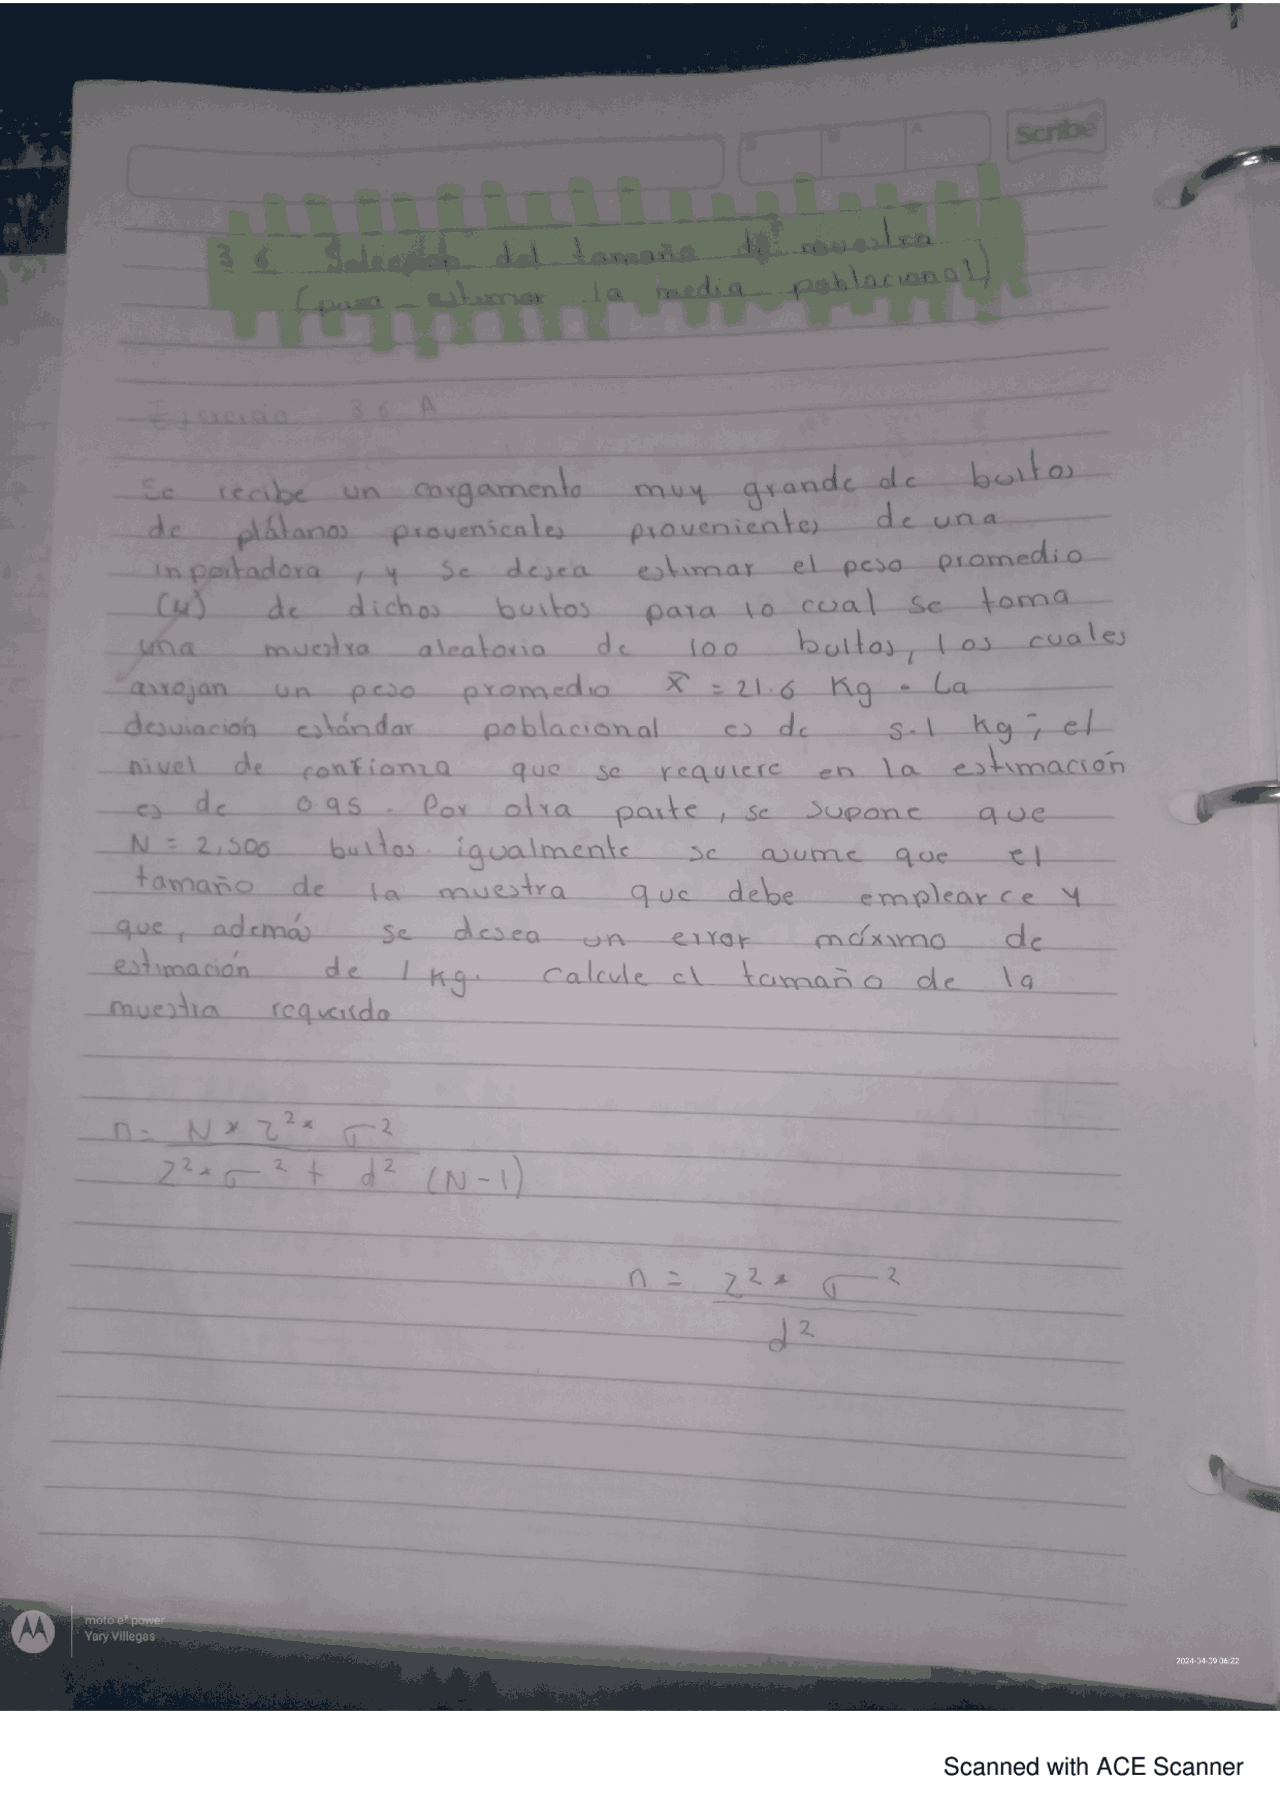 Scribe
3 6 Selección del tamaño de muestra
(para estimar la media poblacional)
Ejercicio 3 6 A
Se recibe un cargamento muy grande de bultos
de plátanos provenientes provenientes de una
inportadora, y se desea estimar el peso promedio
(μ) de dichos bultos para lo cual se toma
una muestra aleatoria de 100 bultos, los cuales
arrojan un peso promedio x̄ = 21.6 Kg. La
desviación estándar poblacional es de 5.1 Kg; el
nivel de confianza que se requiere en la estimación
es de 0.95. Por otra parte, se supone que
N = 2,500 bultos. igualmente se asume que el
tamaño de la muestra que debe emplearce y
que, además se desea un error máximo de
estimación de 1 Kg. Calcule el tamaño de la
muestra requerido
n= N * Z² * σ²
Z² * σ² + d² (N-1)
n = Z² * σ²
d²
moto e⁵ power
Yary Villegas
06:22
Scanned with ACE Scanner